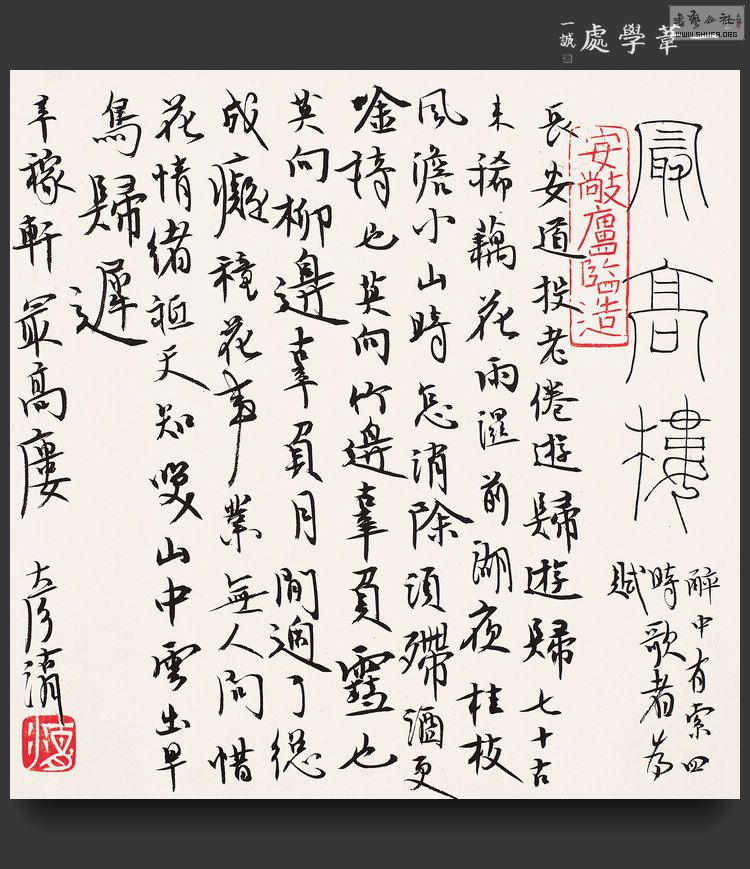 書藝公社
WWW.SHUFA.ORG
一葦學處
一誠
最高樓
醉中有索四
時歌者為
賦
安敞廬臨造
長安道投老倦遊歸遊歸七十古
来稀藕花雨濕前湖夜桂枝
風澹小山時怎消除須殢酒更
唫詩也莫向竹邊辜負雪也
莫向柳邊辜負月閒過了総
成癡種花事業無人問惜
花情緒祗天知笑山中雲出早
鳥歸遲
辛稼軒最高廔